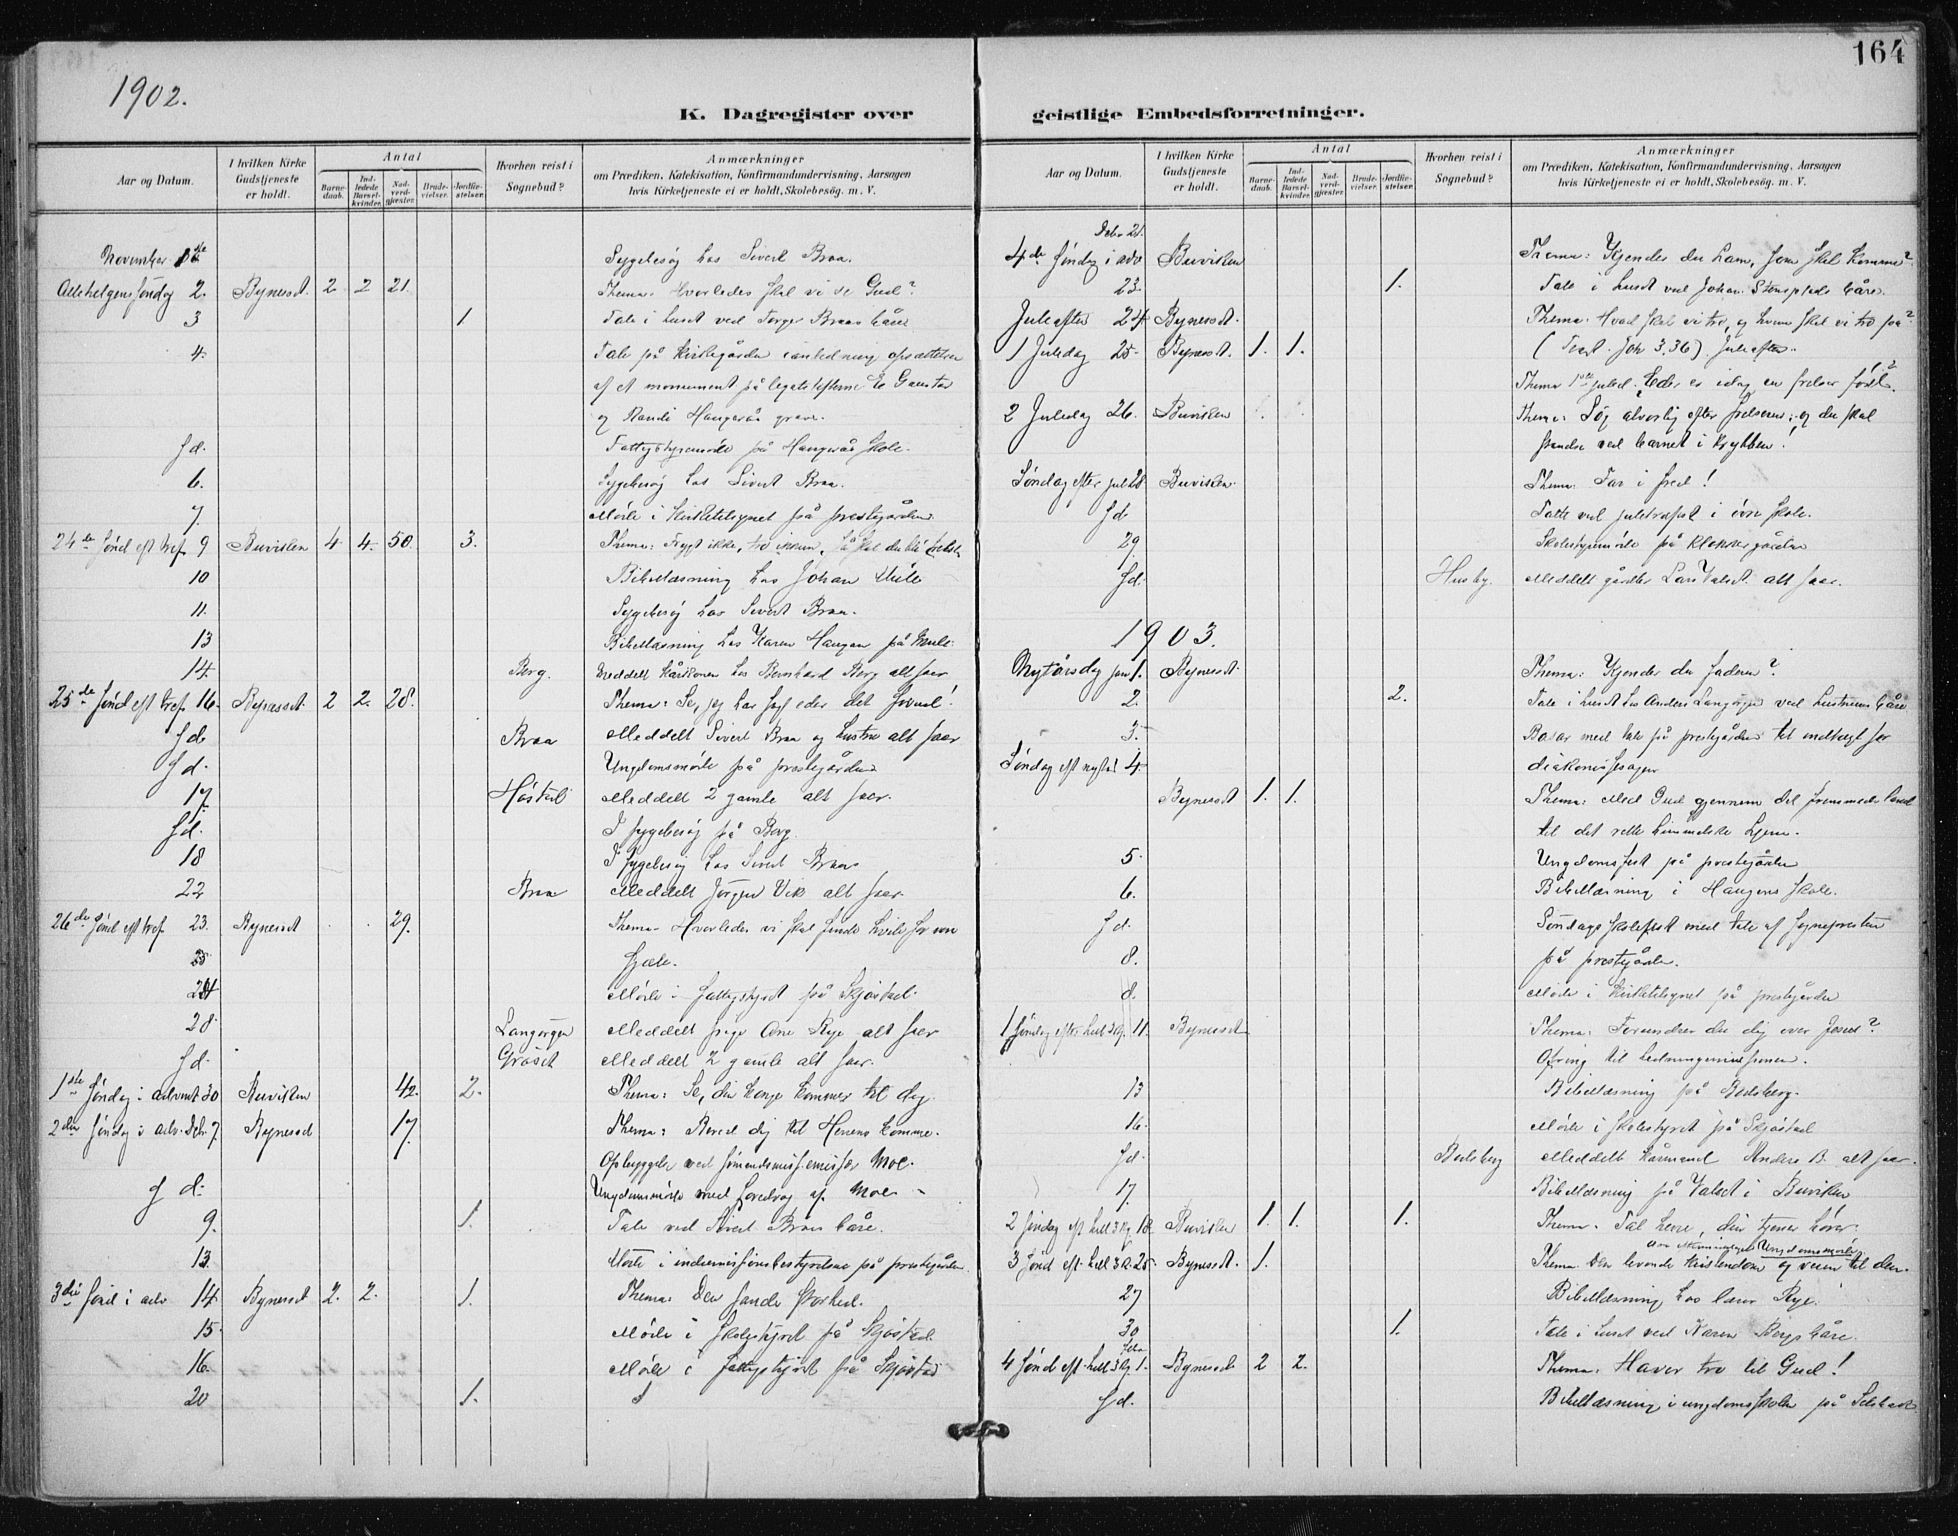 164
1902.
K. Dagregister over geistlige Embedsforretninger.
Aar og Datum.
I hvilken Kirke Gudstjeneste er holdt.
Antal
Barnedaab.
Indledede Barselkvinder.
Nadverdgjæster.
Brudevielser.
Jordfæstelser.
Hvorhen reist i Sognebud?
Anmærkninger
om Prædiken, Katekisation, Konfirmandundervisning, Aarsagen
hvis Kirketjeneste ei er holdt, Skolebesøg. m. V.
November 1ste Sygebesøg hos Sivert Braa.
Allehelgens søndag 2. Bynesset. 2 2 21. Thema: Hvorledes skal vi se Gud?
3 1 Tale i huset ved Braas båre
4. Tale på kirkegården i anledning opsættelse
af et monument på legatstifterne E. Gaustad
og Randi Hangerås grave.
S.d. Fattigstyremøde på Hangerås skole.
6. Sygebesøg hos Sivert Braa.
7. Møde i kirketilsynet på prestegården.
24de Sønd eft tref. 9 Buviken 4. 4. 50. 3. Thema: Frygt ikke, tro ikkun, så skal du bli frelst
10 Bibellæsning hos Johan
11. Sygebesøg hos Sivert Braa.
13 Bibellæsning hos Karen Haugan på Mule.
14. Berg. Meddelt hos Bernhard Berg alt sacr.
25de Sønd eft tref. 16. Bynesset. 2 2. 28. Thema: Se, jeg har sagt eder det forud!
S.d. Braa Meddelt Sivert Braa og hustru alt sacr
S.d. Ungdomsmøde på prestegården
17. Høstad Meddelt 2 gamle alt sacr.
S.d. I sygebesøg på Berg.
18 I sygebesøg hos Sivert Braa
22 Braa Meddelt Jørgen Vik alt sacr.
26de Sønd eft tref. 23. Bynesset 29. Thema: Hvorledes vi skal finde hvile for vor
sjæle.
24 Møde i fattigstyret på Skjøstad.
28 Langørgen Meddelt pige Ane Rye alt sacr
S.d. Grøset Meddelt 2 gamle alt sacr.
1ste Søndag i advent 30 Buviken 42. 2. Thema: Se, din konge kommer til dig.
2den Søndag i adv. Dcbr. 7. Bynesset 17. Thema: Bered dig til Herrens komme.
Opbyggelse ved Moe.
S.d. Ungdomsmøte med foredrag af Moe
9. 1. Tale ved Sivert Braas båre.
13. Møte i indremissionsbestyrelsen på prestegården
3die Sønd i adv 14. Bynesset 2. 2. 1. Thema: Den sande storhed.
15. Møde i skolestyret på Skjøstad.
16. Møde i fattigstyret på Skjøstad
20 1.
Aar og Datum.
I hvilken Kirke Gudstjeneste er holdt.
Antal
Barnedaab.
Indledede Barselkvinder.
Nadverdgjæster.
Brudevielser.
Jordfæstelser.
Hvorhen reist i Sognebud?
Anmærkninger
om Prædiken, Katekisation, Konfirmandundervisning, Aarsagen
hvis Kirketjeneste ei er holdt, Skolebesøg. m. V.
Dcbr 21.
4de Søndag i adv Buviken Thema: Kjender du ham, som skal komme?
23. 1. Tale i huset ved Johan Stensplads båre.
Juleaften 24. Bynesset. Thema: Hvad skal vi tro, og hvem skal vi tro på?
1 Juledag 25. Bynesset. 1. 1. (Text. Joh 3.36). Juleaften.
Thema 1ste juled: Eder er idag en frelser født.
2 Juledag 26. Buviken Thema: Søg alvorlig efter frelseren; og du skal
standse ved barnet i krybben!
Søndag efter jul 28 Buviken. Thema: Far i fred!
S.d Tale ved juletræfest i øvre skole.
29 Skolestyremøde på Klokkergården
S.d. Husby. Meddelt Lars Valset alt sacr.
1903.
Nytårsdag jan 1. Bynesset. Thema: Kjender du faderen?
2. 2. Tale i huset hos Anders Langørgen ved hustruens båre
3. Basar med tale på prestegården til indtægt for
diakonissesagen
Søndag eft nytår 4. Bynesset 1. 1. Thema: Med Gud gjennem det fremmede land
til det rette himmelske hjem.
5. Ungdomsfest på prestegården
6. Bibellæsning i Haugens skole.
S.d. Søndagsskolefest med tale af sognepresten
på prestegården.
8. Møde i kirketilsynet på prestegården
1 Søndag efter hell 3 kg. 11. Bynesset Thema: Forundrer du dig over Jesus?
Ofring til hedningemissionen.
13 Bibellæsning på Bodsberg.
16. Møde i skolestyret på Skjøstad
S.d. Bodsberg Meddelt kårmand Anders B. alt sacr.
17. Bibellæsning på Valset i Buviken
2 Søndag eft hell 3 kg. 18. Buviken 1. 1. 1. Thema: Tal herre, din tjener hører.
Ungdomsmøde
3 Sønd eft. hell 3 k. 25. Bynesset. 1. Thema Den levende kristendom og veien til den.
27 Bibellæsning hos lærer Rye.
30 1. Tale i huset ved Karen Bergs båre.
Febr
4 Sønd eft. hell 3 kg. 1. Bynesset 2 2. Thema: Haver tro til Gud!
S.d. Bibellæsning i ungdomsskolen på